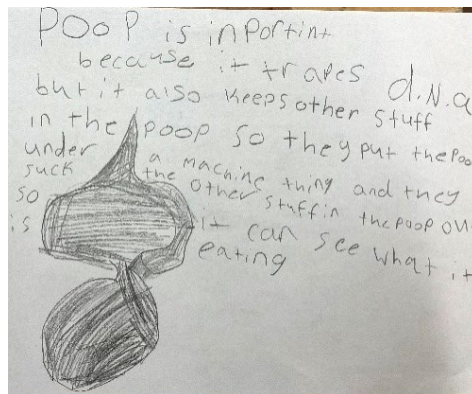 Poop is inportint
because it traPes d.N.a
but it also keeps other stuff
in the poop so they put the Poo
under a machine thing and they
suck the other stuff in the poop ou
so it can see what it
is eating